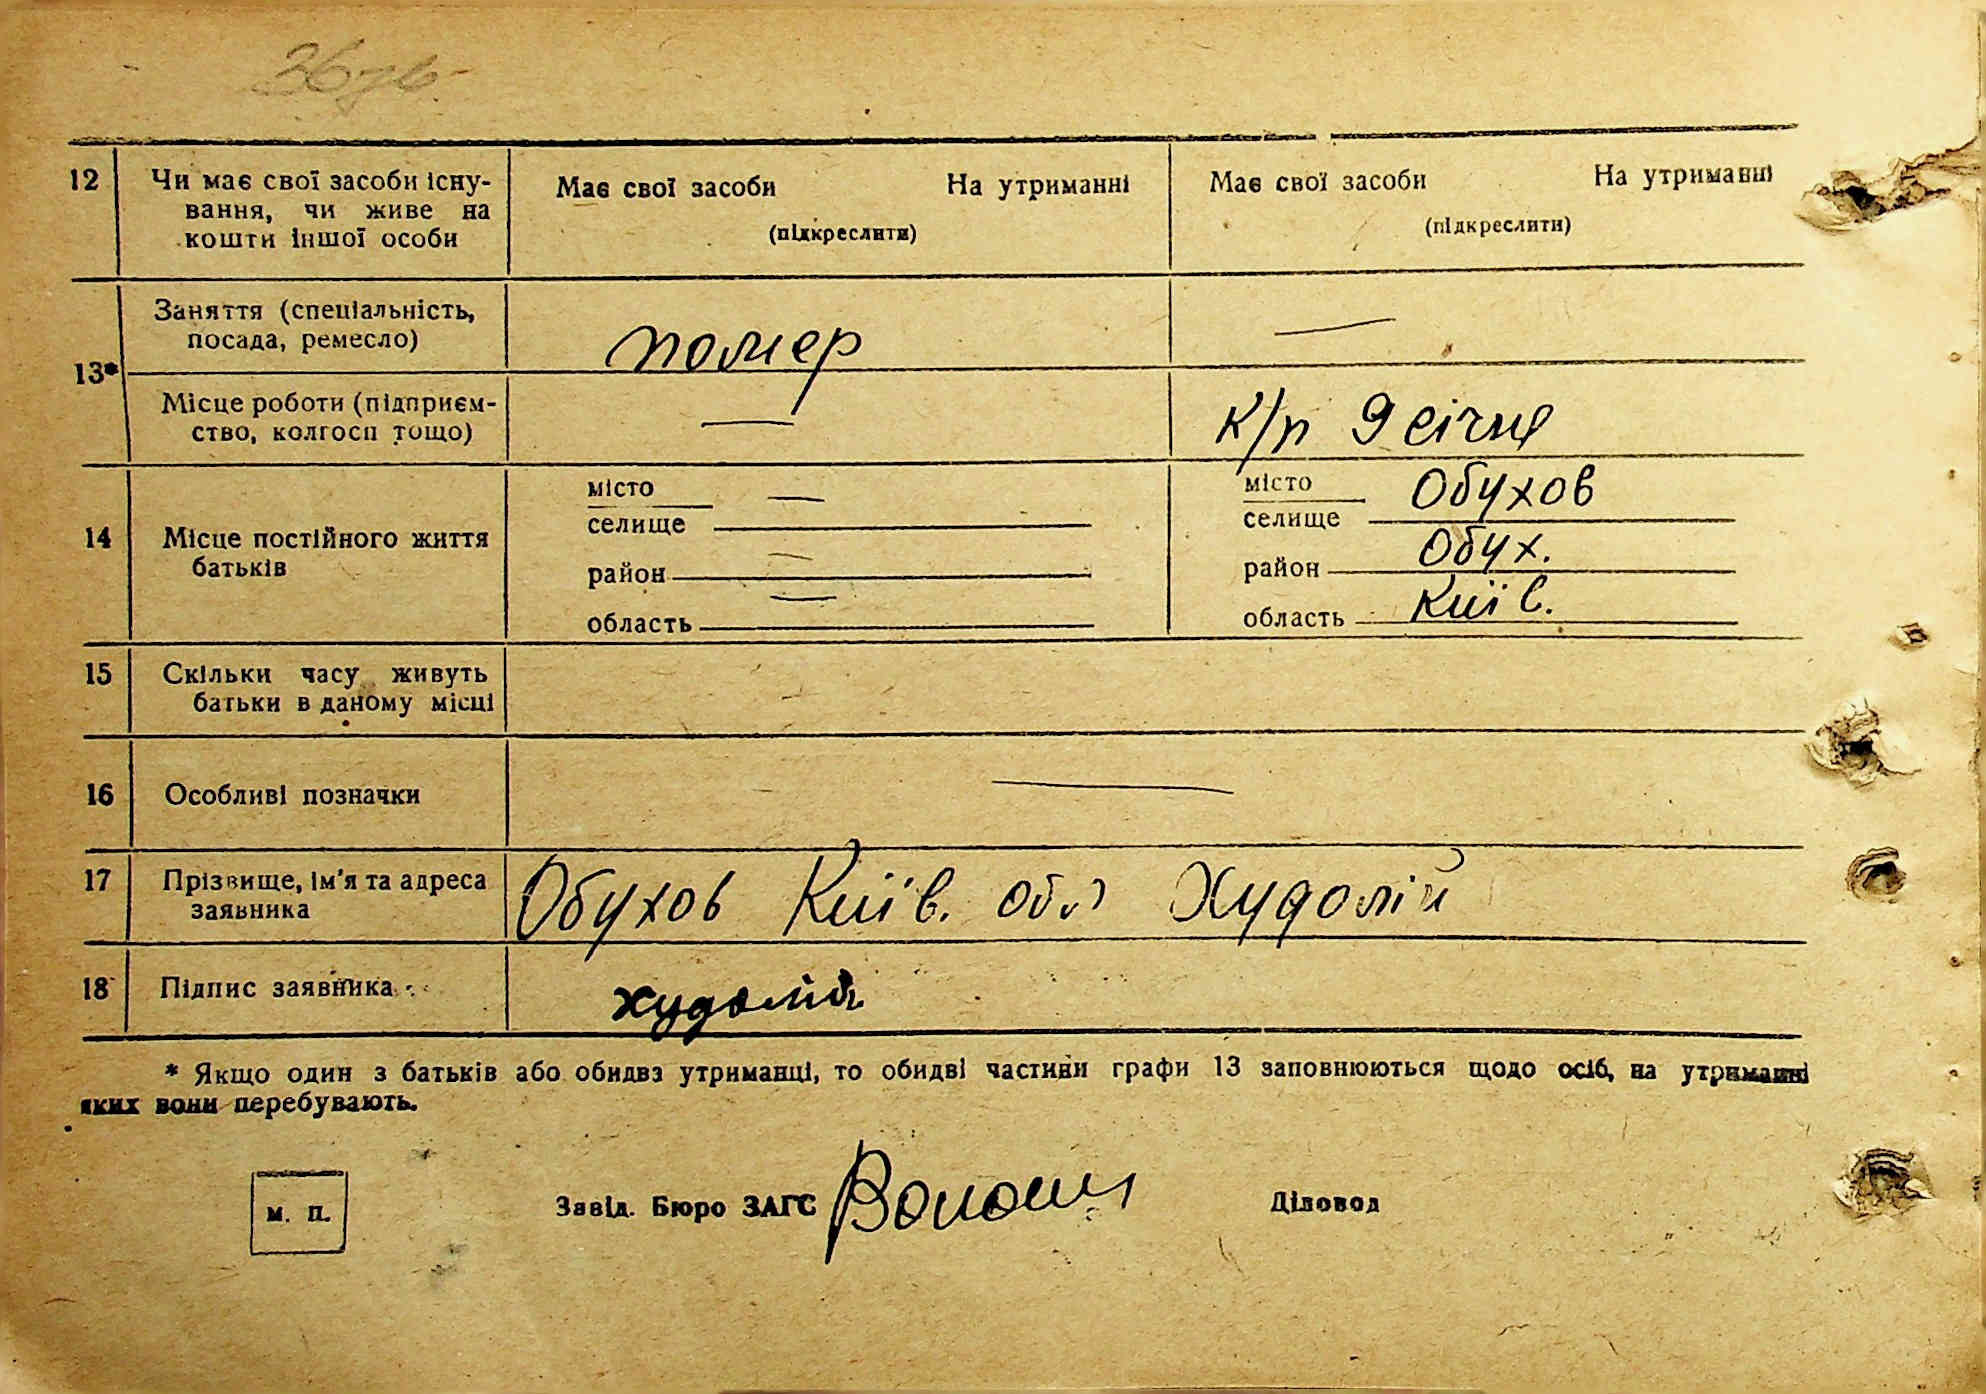 12 Чи має свої засоби існу- Має свої засоби На утриманні Має свої засоби На утриманні
вання, чи живе на (підкреслити) (підкреслити)
кошти іншої особи
13* Заняття (спеціальність, помер —
посада, ремесло)
Місце роботи (підприєм- — к/п 9 січня
ство, колгосп тощо)
14 Місце постійного життя батьків
місто — місто Обухов
селище селище
район — район Обух.
область — область Київ.
15 Скільки часу живуть
батьки в даному місці
16 Особливі позначки —
17 Прізвище, ім'я та адреса Обухов Київ. обл Худолій
заявника
18 Підпис заявника худолій
* Якщо один з батьків або обидва утриманці, то обидві частини графи 13 заповнюються щодо осіб, на утриманні
яких вони перебувають.
м. п. Завід. Бюро ЗАГС Діловод